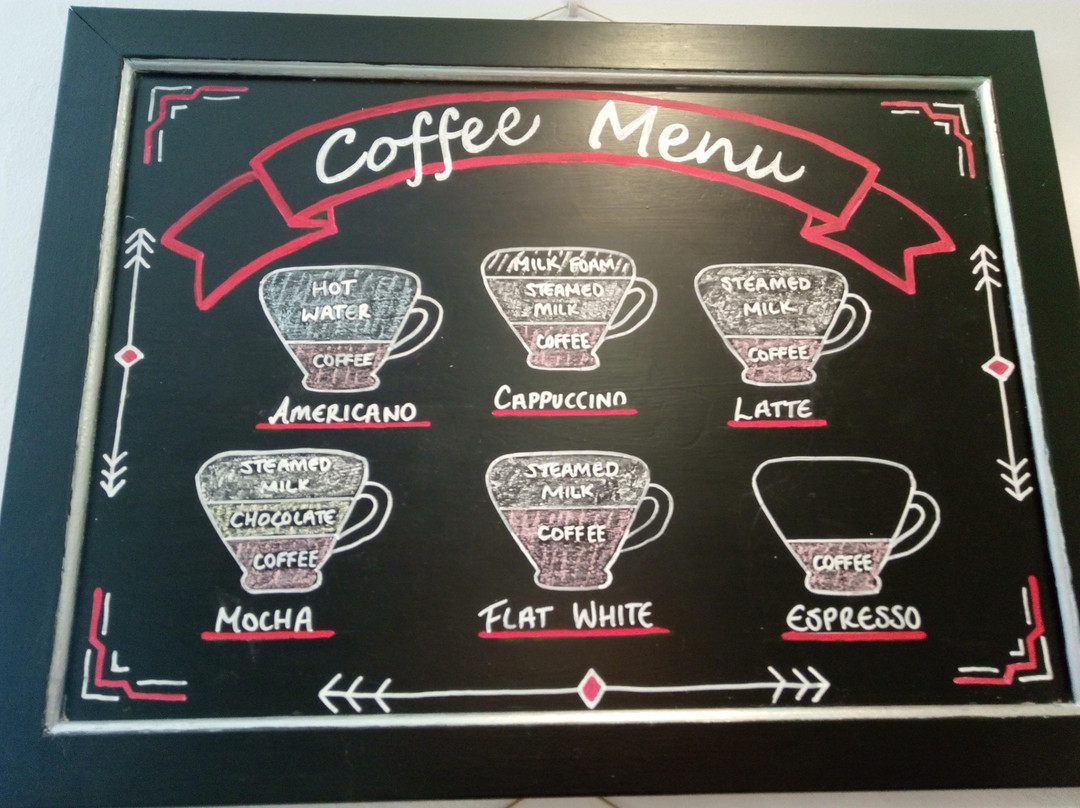 Coffee Menu
HOT
WATER
COFFEE
AMERICANO
MILK FOAM
STEAMED
MILK
COFFEE
CAPPUCCINO
STEAMED
MILK
COFFEE
LATTE
STEAMED
MILK
CHOCOLATE
COFFEE
MOCHA
STEAMED
MILK
COFFEE
FLAT WHITE
COFFEE
ESPRESSO